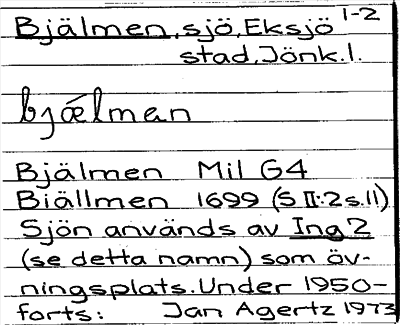 Bjälmen, sjö, Eksjö 1-2
stad, Jönk.l.
bjǽlman
Bjälmen Mil G4
Biällmen 1699 (S II:2 s.11)
Sjön används av Ing 2
(se detta namn) som öv-
ningsplats. Under 1950-
forts: Jan Agertz 1973